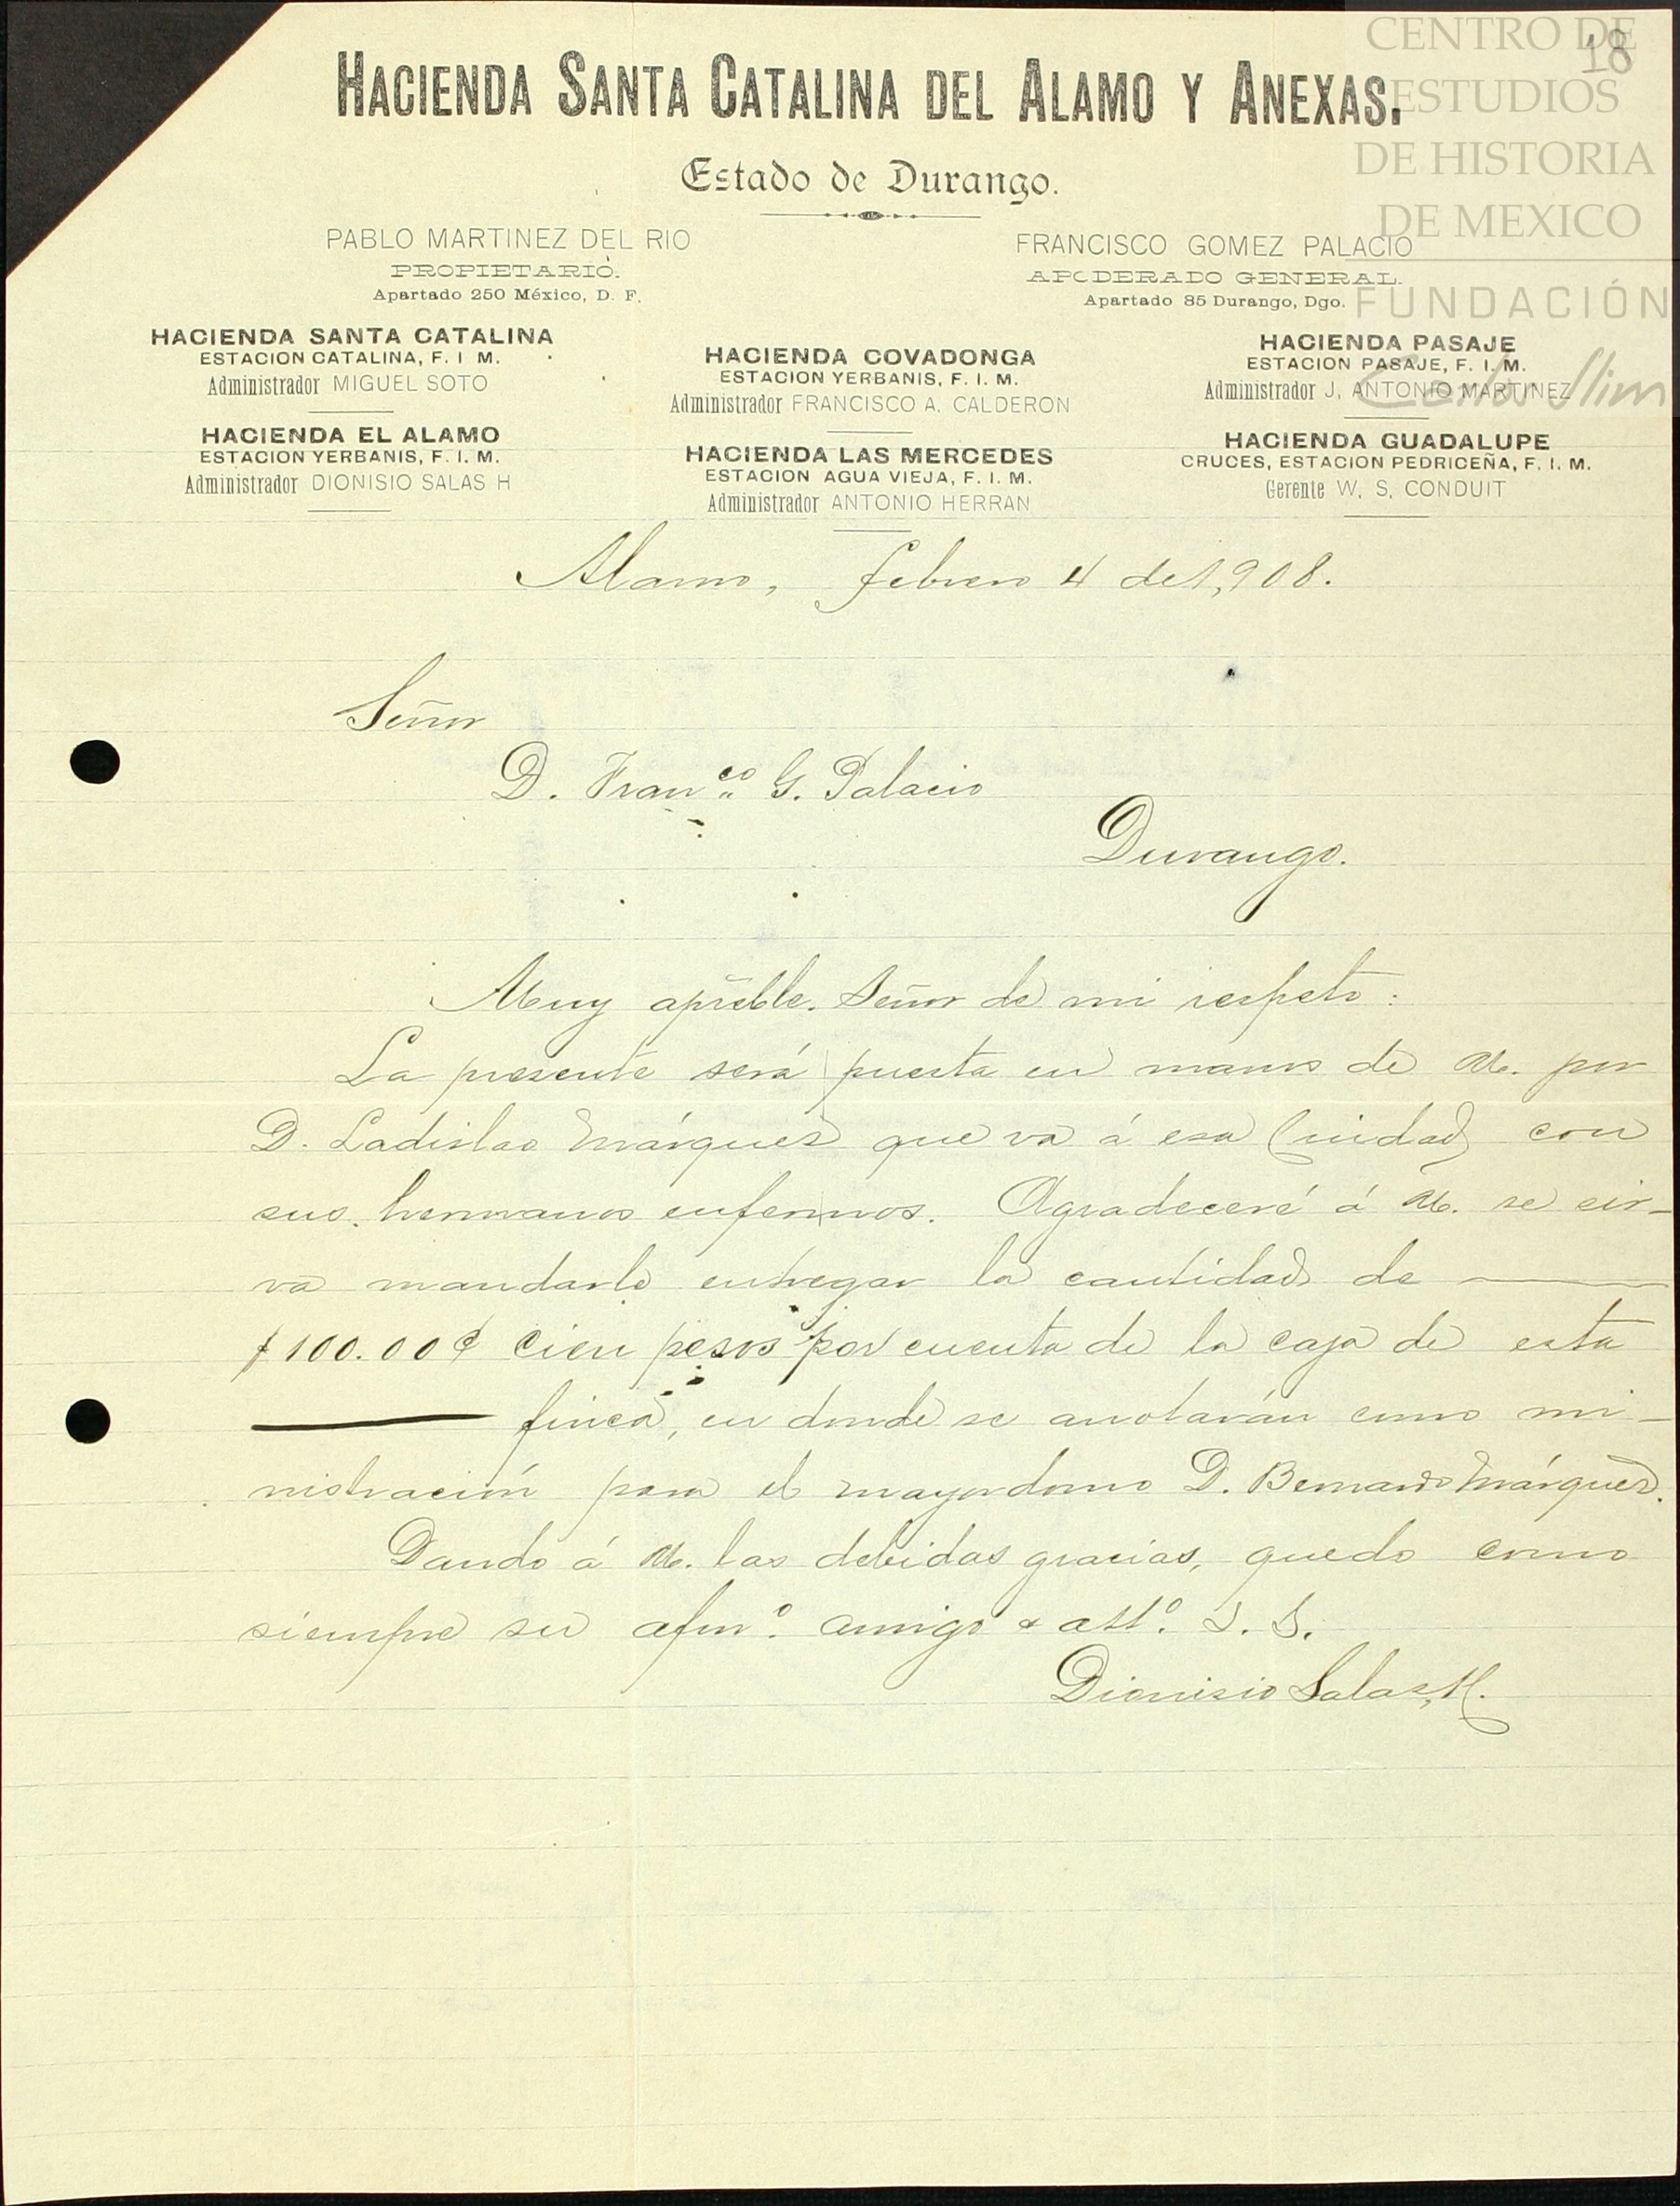 CENTRO DE
ESTUDIOS
DE HISTORIA
DE MEXICO
FUNDACIÓN
Carlos Slim
18
HACIENDA SANTA CATALINA DEL ALAMO Y ANEXAS.
Estado de Durango.
PABLO MARTINEZ DEL RIO
PROPIETARIO.
Apartado 250 México, D. F.
FRANCISCO GOMEZ PALACIO
APODERADO GENERAL.
Apartado 85 Durango, Dgo.
HACIENDA SANTA CATALINA
ESTACION CATALINA, F. I M.
Administrador MIGUEL SOTO
HACIENDA EL ALAMO
ESTACION YERBANIS, F. I. M.
Administrador DIONISIO SALAS H
HACIENDA COVADONGA
ESTACION YERBANIS, F. I. M.
Administrador FRANCISCO A. CALDERON
HACIENDA LAS MERCEDES
ESTACION AGUA VIEJA, F. I. M.
Administrador ANTONIO HERRAN
HACIENDA PASAJE
ESTACION PASAJE, F. I. M.
Administrador J. ANTONIO MARTINEZ
HACIENDA GUADALUPE
CRUCES, ESTACION PEDRICEÑA, F. I. M.
Gerente W. S. CONDUIT
Alamo, febrero 4 de 1,908.
Señor
D. Franco G. Palacio
Durango.
Muy apreble. Señor de mi respeto:
La presente será puesta en manos de U. por
D. Ladislao Márquez que va á esa Ciudad con
sus hermanos enfermos. Agradeceré á U. se sir-
va mandarle entregar la cantidad de
$100.00¢ cien pesos por cuenta de la caja de esta
finca, en donde se anotarán como mi-
nistración para el mayordomo D. Bernardo Márquez.
Dando á U. las debidas gracias, quedo como
siempre su afmo. amigo & atto. S. S.
Dionisio Salas H.